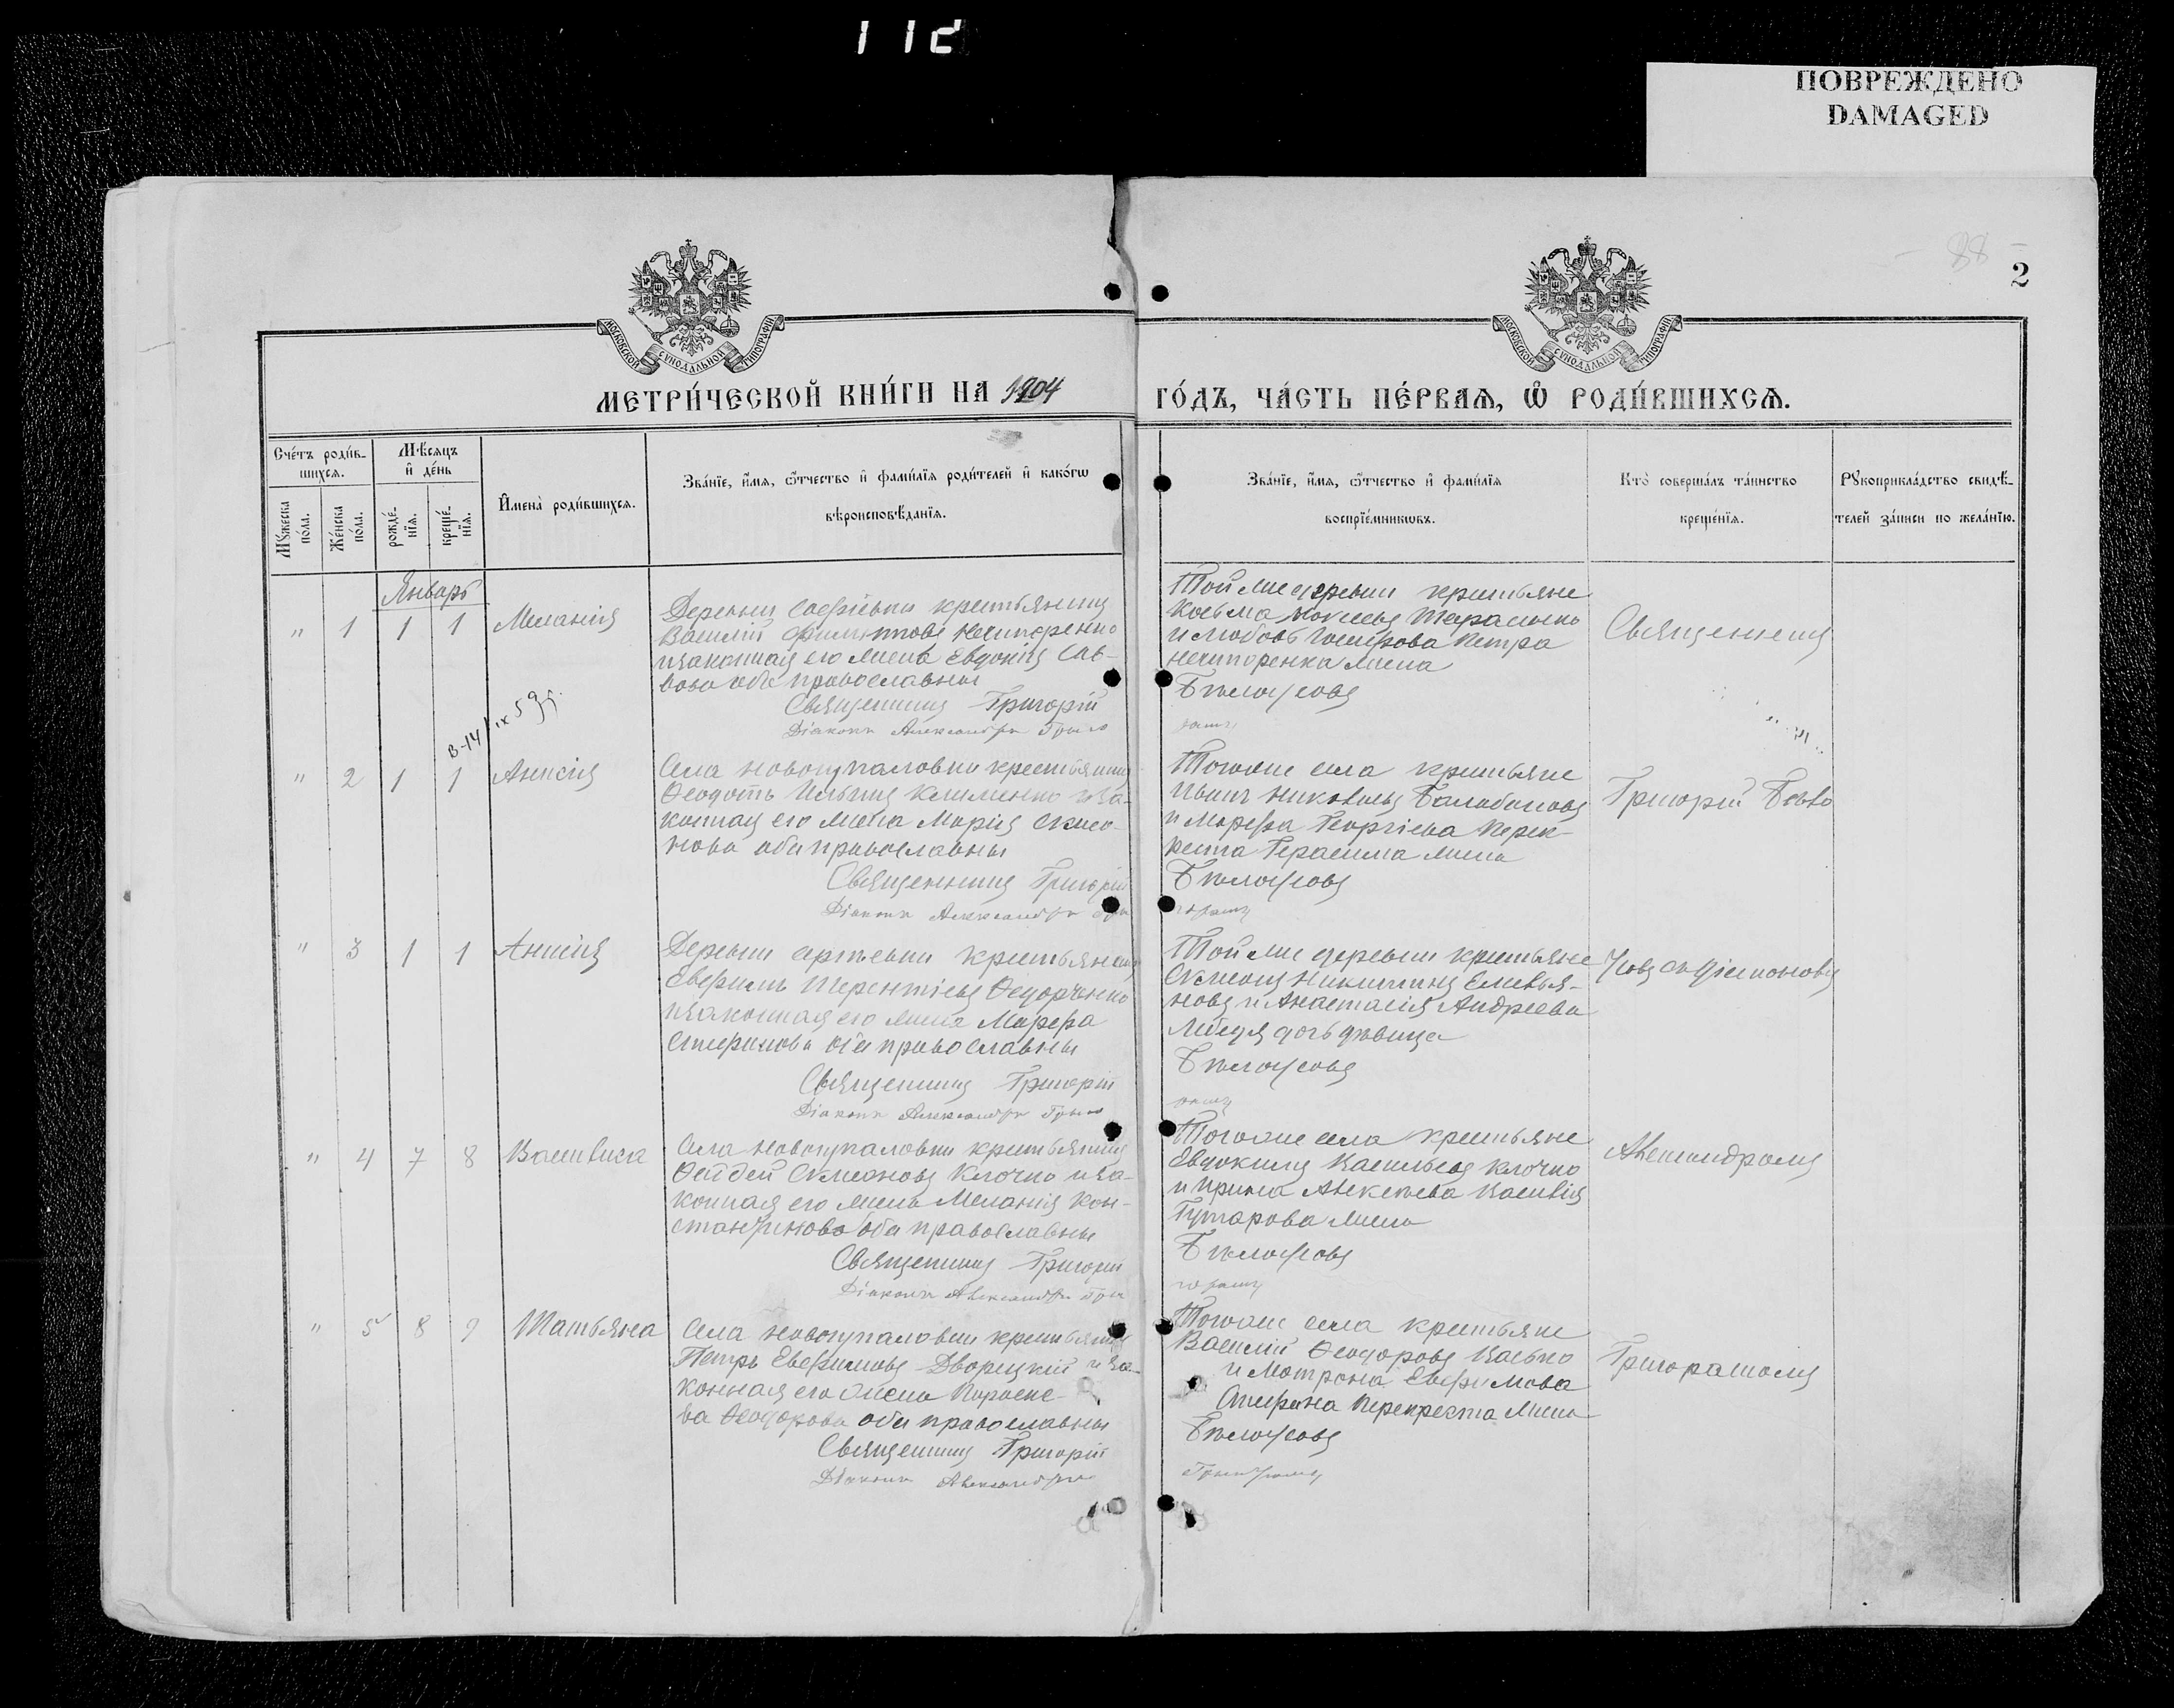 112
ПОВРЕЖДЕНО
DAMAGED
88
2
МОСКОВСКОЙ СѴНОДАЛЬНОЙ ТИПОГРАФІИ
МОСКОВСКОЙ СѴНОДАЛЬНОЙ ТИПОГРАФІИ
МЕТРИ́ЧЕСКОЙ КНИ́ГИ НА 1904
ГО́ДЪ, ЧА́СТЬ ПЕ́РВАѦ, Ѡ҆ РОДИ́ВШИХСѦ.
Сче́тъ роди́в-
шихсѧ.
Мѣ́сяцъ
и҆ де́нь
Мꙋ́жеска
по́ла.
Же́нска
по́ла.
рожде́-
нїѧ.
креще́-
нїѧ.
И҆мена̀ роди́вшихсѧ.
Зва́нїе, и҆́мѧ, ѻ҆́тчество и҆ фами́лїѧ роди́телей и҆ како́гѡ
вѣроисповѣ́данїѧ.
Зва́нїе, и҆́мѧ, ѻ҆́тчество и҆ фами́лїѧ
воспрїе́мникѡвъ.
Кто̀ соверша́лъ та́инство
креще́нїѧ.
Рꙋкоприкла́дство свидѣ́-
телей за́писи по жела́нїю.
Январь
" 1 1 1 Меланія
Деревни Софіевки крестьянинъ
Василій Нечипоренко
и законная его жена Евдокія Сав-
вова оба православные
Священникъ Григорій
Діаконъ Александръ
Той же деревни крестьяне
Косьма
и Любовь Петра
Нечипоренка жена
Бѣлоусовъ
Священникъ
" 2 1 1 Анисія
Села Новогупаловки крестьянинъ
Ѳеодотъ Ильинъ Клименко и за-
конная его жена Марія Симео-
нова оба православные
Священникъ Григорій
Діаконъ Александръ
Того же села крестьяне
Иванъ
и Марфа Георгіева Перек-
реста Герасима жена
Бѣлоусовъ
Григорій Бѣло
" 3 1 1 Анисія
Деревни крестьянинъ
Евфимъ Терентіевъ Ѳедорченко
и законная его жена Марфа
Стефанова оба православные
Священникъ Григорій
Діаконъ Александръ
Той же деревни крестьяне
Симеонъ Никитинъ Емелья-
новъ и Анастасія Андреева
Лебедя дочь дѣвица
Бѣлоусовъ
усовъ съ діакономъ
" 4 7 8 Василиса
Села Новогупаловки крестьянинъ
Симеоновъ Клочко и за-
конная его жена Меланія Кон-
стантинова оба православные
Священникъ Григорій
Діаконъ Александръ
Того же села крестьяне
Евдокимъ Васильевъ Клочко
и Ирина Алексѣева
жена
Бѣлоусовъ
Александромъ
" 5 8 9 Татьяна
Села Новогупаловки крестьянинъ
Петръ Евфимовъ Дворецкій и за-
конная его жена Параске-
ва Ѳеодорова оба православные
Священникъ Григорій
Діаконъ Александръ
Того же села крестьяне
Василій Ѳеодоровъ Касько
и Матрона Евфимова
Стефана Перекреста жена
Бѣлоусовъ
Григорашомъ